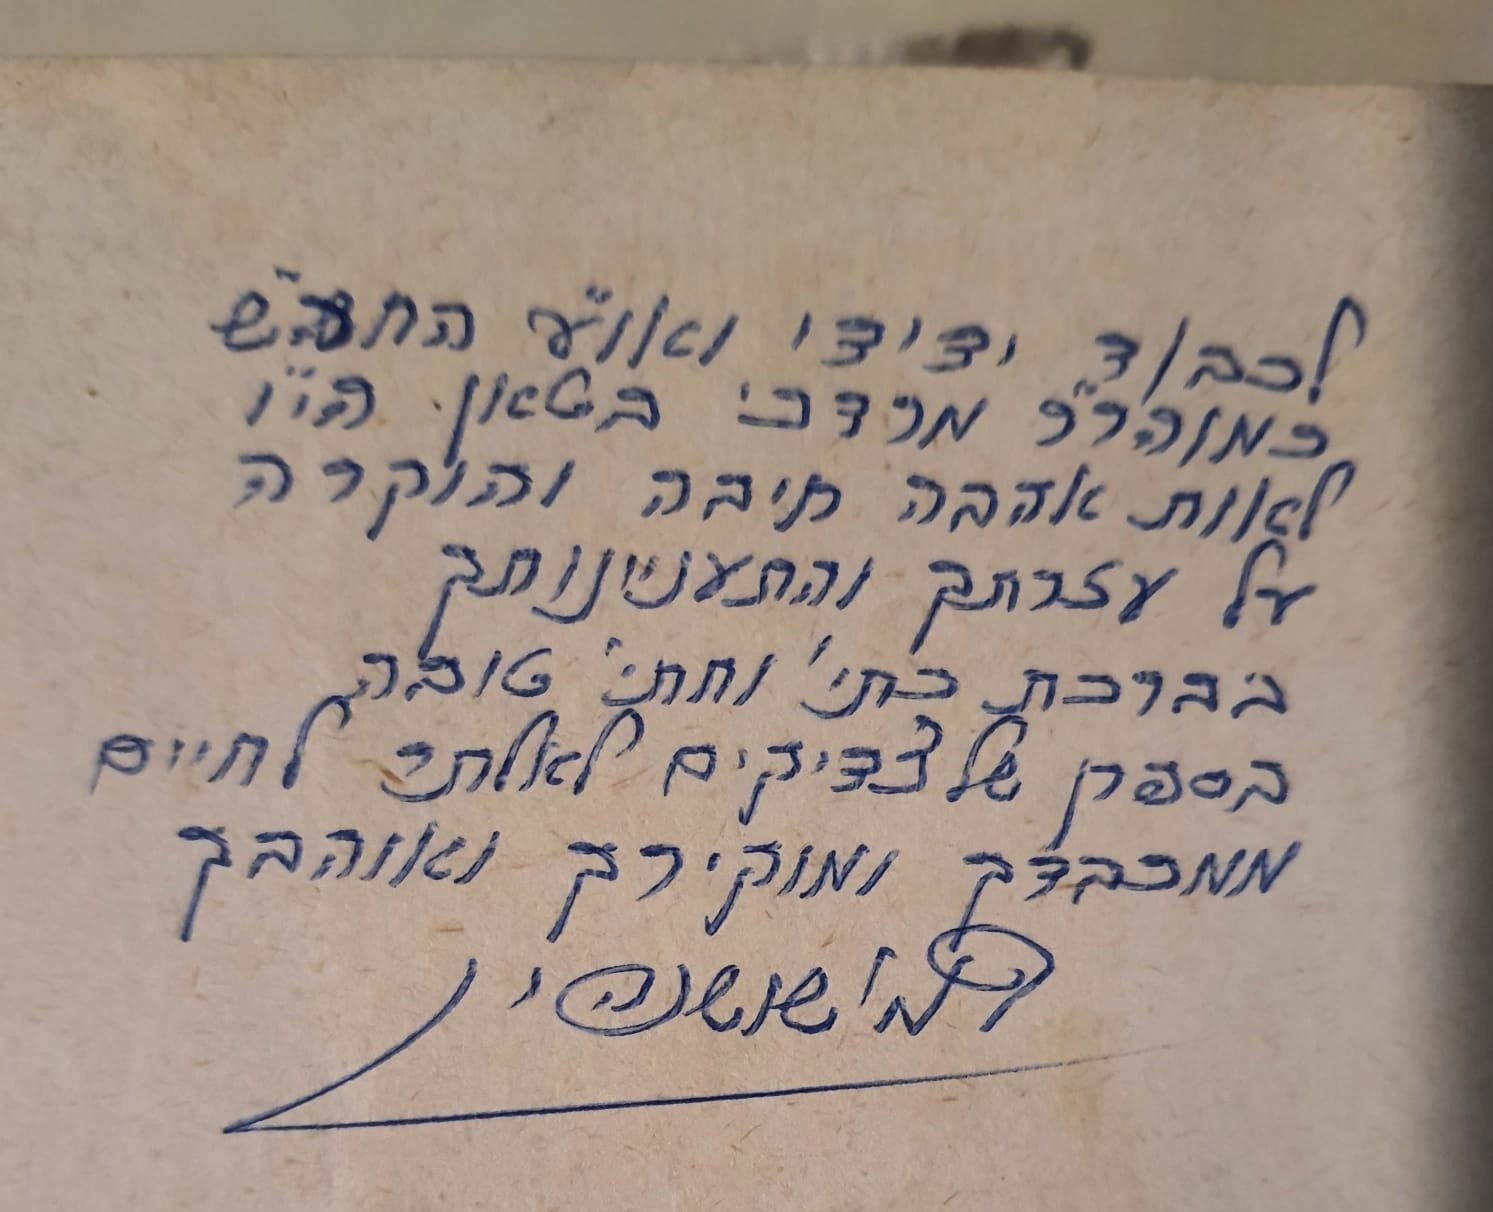 לכבוד ידידי ואו"ע
כמוהר"ר מרדכי בטאון הי"ו
לאות אהבה חיבה והוקרה
על עזרתך והתענינותך
בברכת כתי' וחתי' טובה
בספרן של צדיקים לאלתר לחיים
ממכבדך ומוקירך ואוהבך